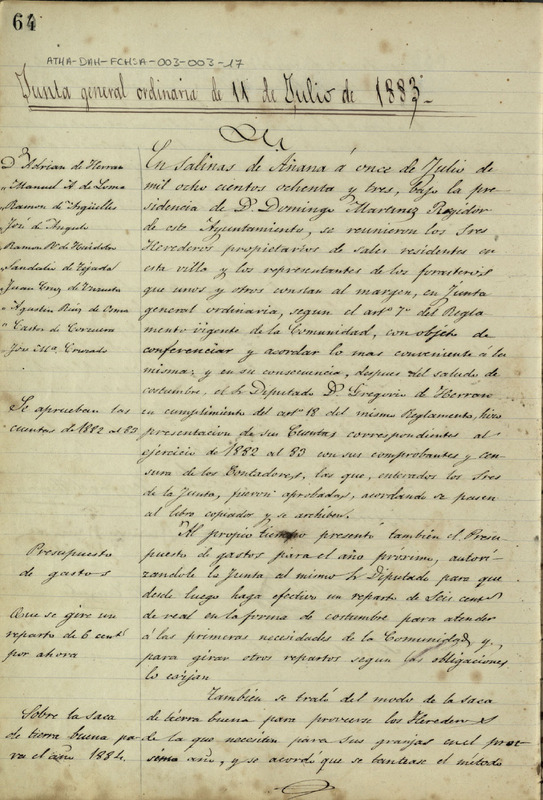 64
ATHA-DAH-FCHSA-003-003-17
Junta general ordinaria de 11 de Julio de 1883.
D. Adrian de Herran
" Manuel A. de Loma
Ramon de Argüelles
José de Angulo
Ramon de
Sandalio de Tejada
Juan Cruz de
" Agustin Ruiz de Oma
" Castor de Corcuera
" José Mª. Cruzado
Se aprueban las
cuentas de 1882 al 83.
Presupuesto
de gastos
Que se gire un
reparto de 6 centˢ
por ahora
Sobre la saca
de tierra buena pa-
ra el año 1884.
En Salinas de Añana á once de Julio de
mil ocho cientos ochenta y tres, bajo la pre-
sidencia de D. Domingo Martinez Regidor
de este Ayuntamiento, se reunieron los Sres
Herederos propietarios de sales residentes en
esta villa y los representantes de los forasteros
que unos y otros constan al margen, en Junta
general ordinaria, segun el artº 7º del Regla-
mento vigente de la Comunidad, con objeto de
conferenciar y acordar lo mas conveniente á la
misma; y en su consecuencia, despues del saludo de
costumbre, el Sr Diputado D. Gregorio de Herran
en cumplimiento del artº 18 del mismo Reglamento, hizo
presentacion de sus Cuentas correspondientes al
ejercicio de 1882 al 83 con sus comprobantes y cen-
sura de los Contadores, las que, enterados los Sres
de la Junta, fueron aprobadas, acordando se pasen
al libro copiador y se archiben.
Al propio tiempo presentó tambien el Presu-
puesto de gastos para el año próximo, autori-
zandole la Junta al mismo Sr Diputado para que
desde luego haga efectivo un reparto de Seis centˢ
de real en la forma de costumbre para atender
á las primeras necesidades de la Comunidad y,
para girar otros repartos segun las obligaciones
lo exijan
Tambien se trató del modo de la saca
de tierra buena para proveerse los Herederos
de la que necesiten para sus granjas en el proc-
simo año, y se acordó que se tantease el método